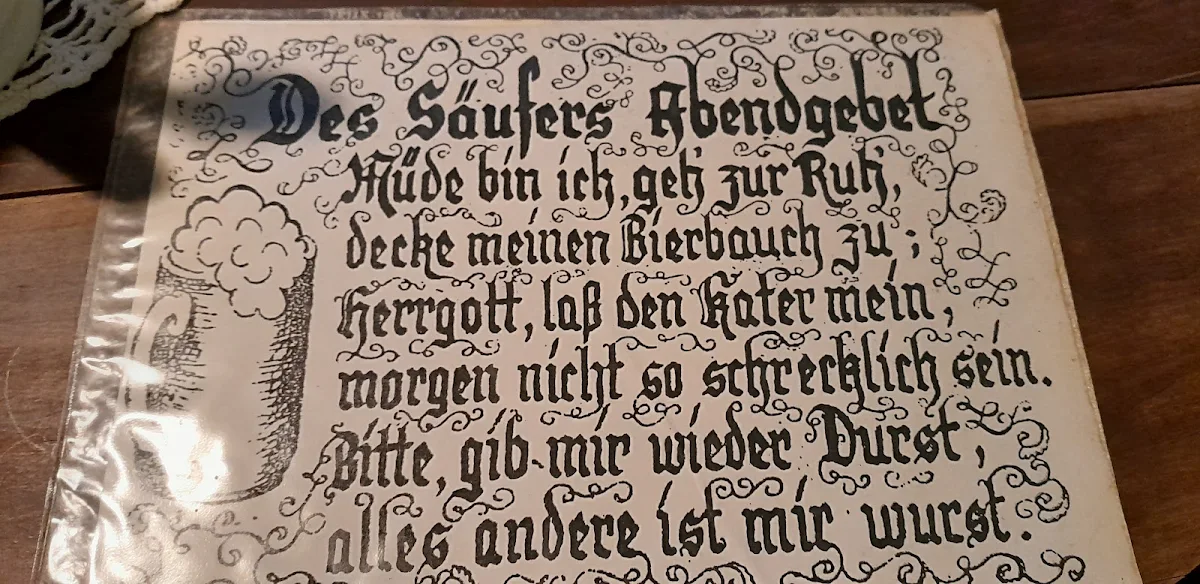 Des Säufers Abendgebet
Müde bin ich, geh' zur Ruh',
decke meinen Bierbauch zu;
Herrgott, laß den Kater mein,
morgen nicht so schrecklich sein.
Bitte, gib mir wieder Durst,
alles andere ist mir wurst.